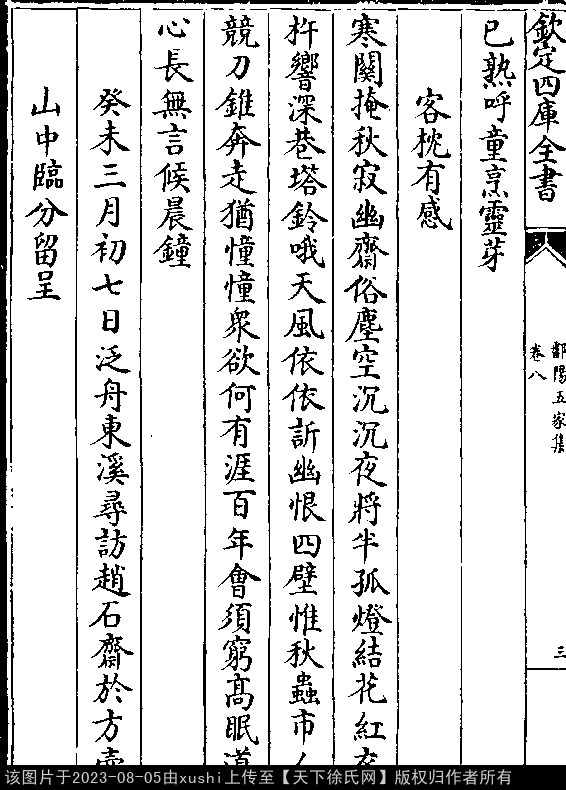 欽定四庫全書
鄱陽五家集
卷八
三
已熟呼童烹靈芽
客枕有感
寒關掩秋寂幽齋俗塵空沉沉夜將半孤燈結花紅
杵響深巷塔鈴哦天風依依訢幽恨四壁惟秋蟲市
競刀錐奔走猶憧憧衆欲何有涯百年會須窮髙眠
心長無言候晨鐘
癸未三月初七日泛舟東溪尋訪趙石齋於方壺
山中臨分留呈
该图片于2023-08-05由xushi上传至【天下徐氏网】版权归作者所有